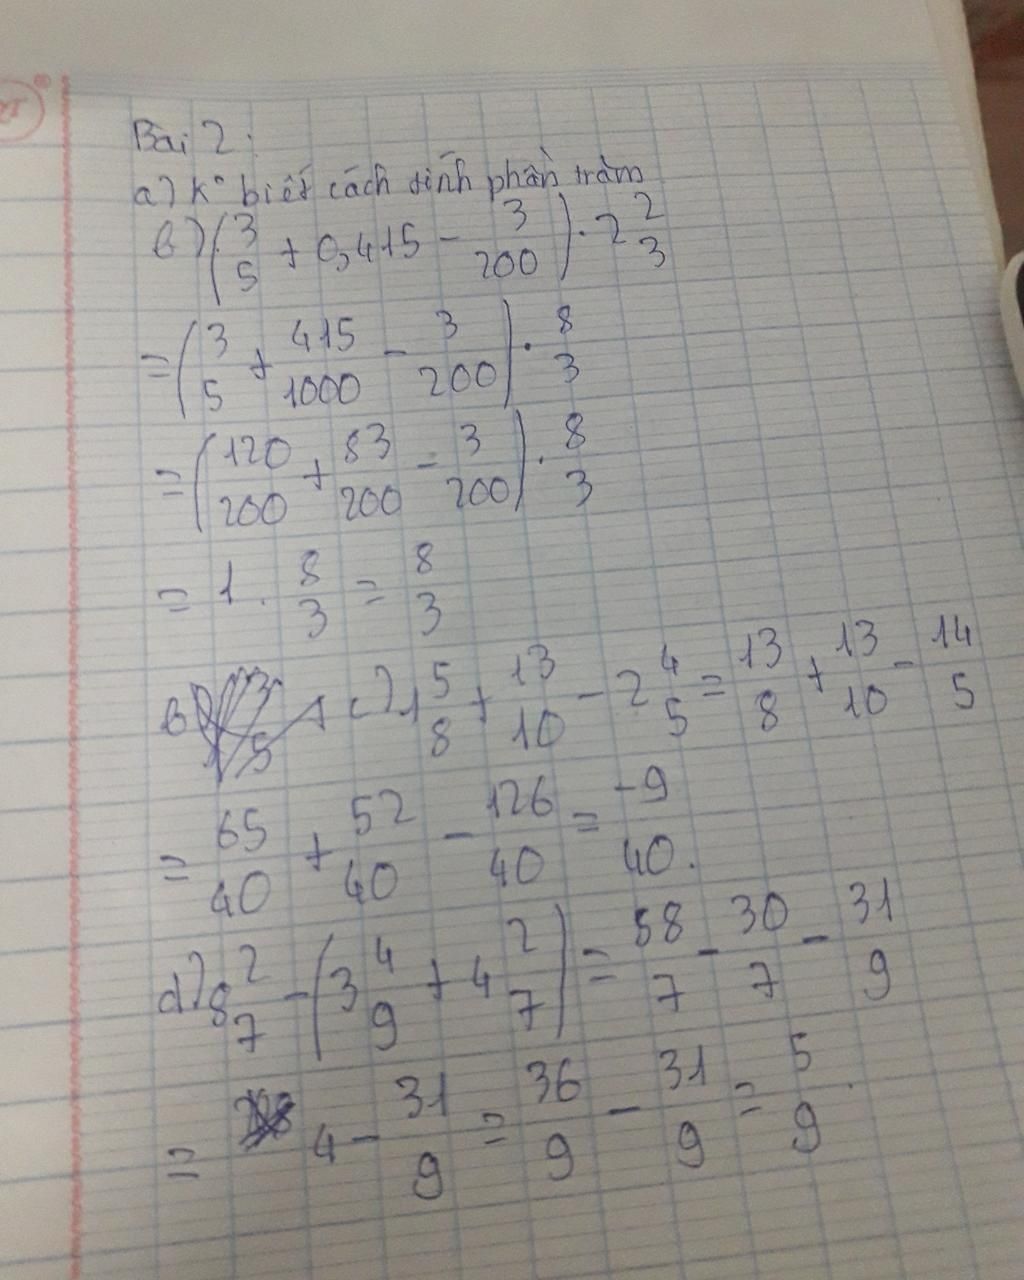 Bài 2:
a) K° biết cách tính phần trăm
b) (3/5 + 0,415 - 3/200) . 2 2/3
= (3/5 + 415/1000 - 3/200) . 8/3
= (120/200 + 83/200 - 3/200) . 8/3
= 1 . 8/3 = 8/3
c) 1 5/8 + 13/10 - 2 4/5 = 13/8 + 13/10 - 14/5
= 65/40 + 52/40 - 126/40 = -9/40.
d) 8 2/7 - (3 4/9 + 4 2/7) = 58/7 - 30/7 - 31/9
= 4 - 31/9 = 36/9 - 31/9 = 5/9.